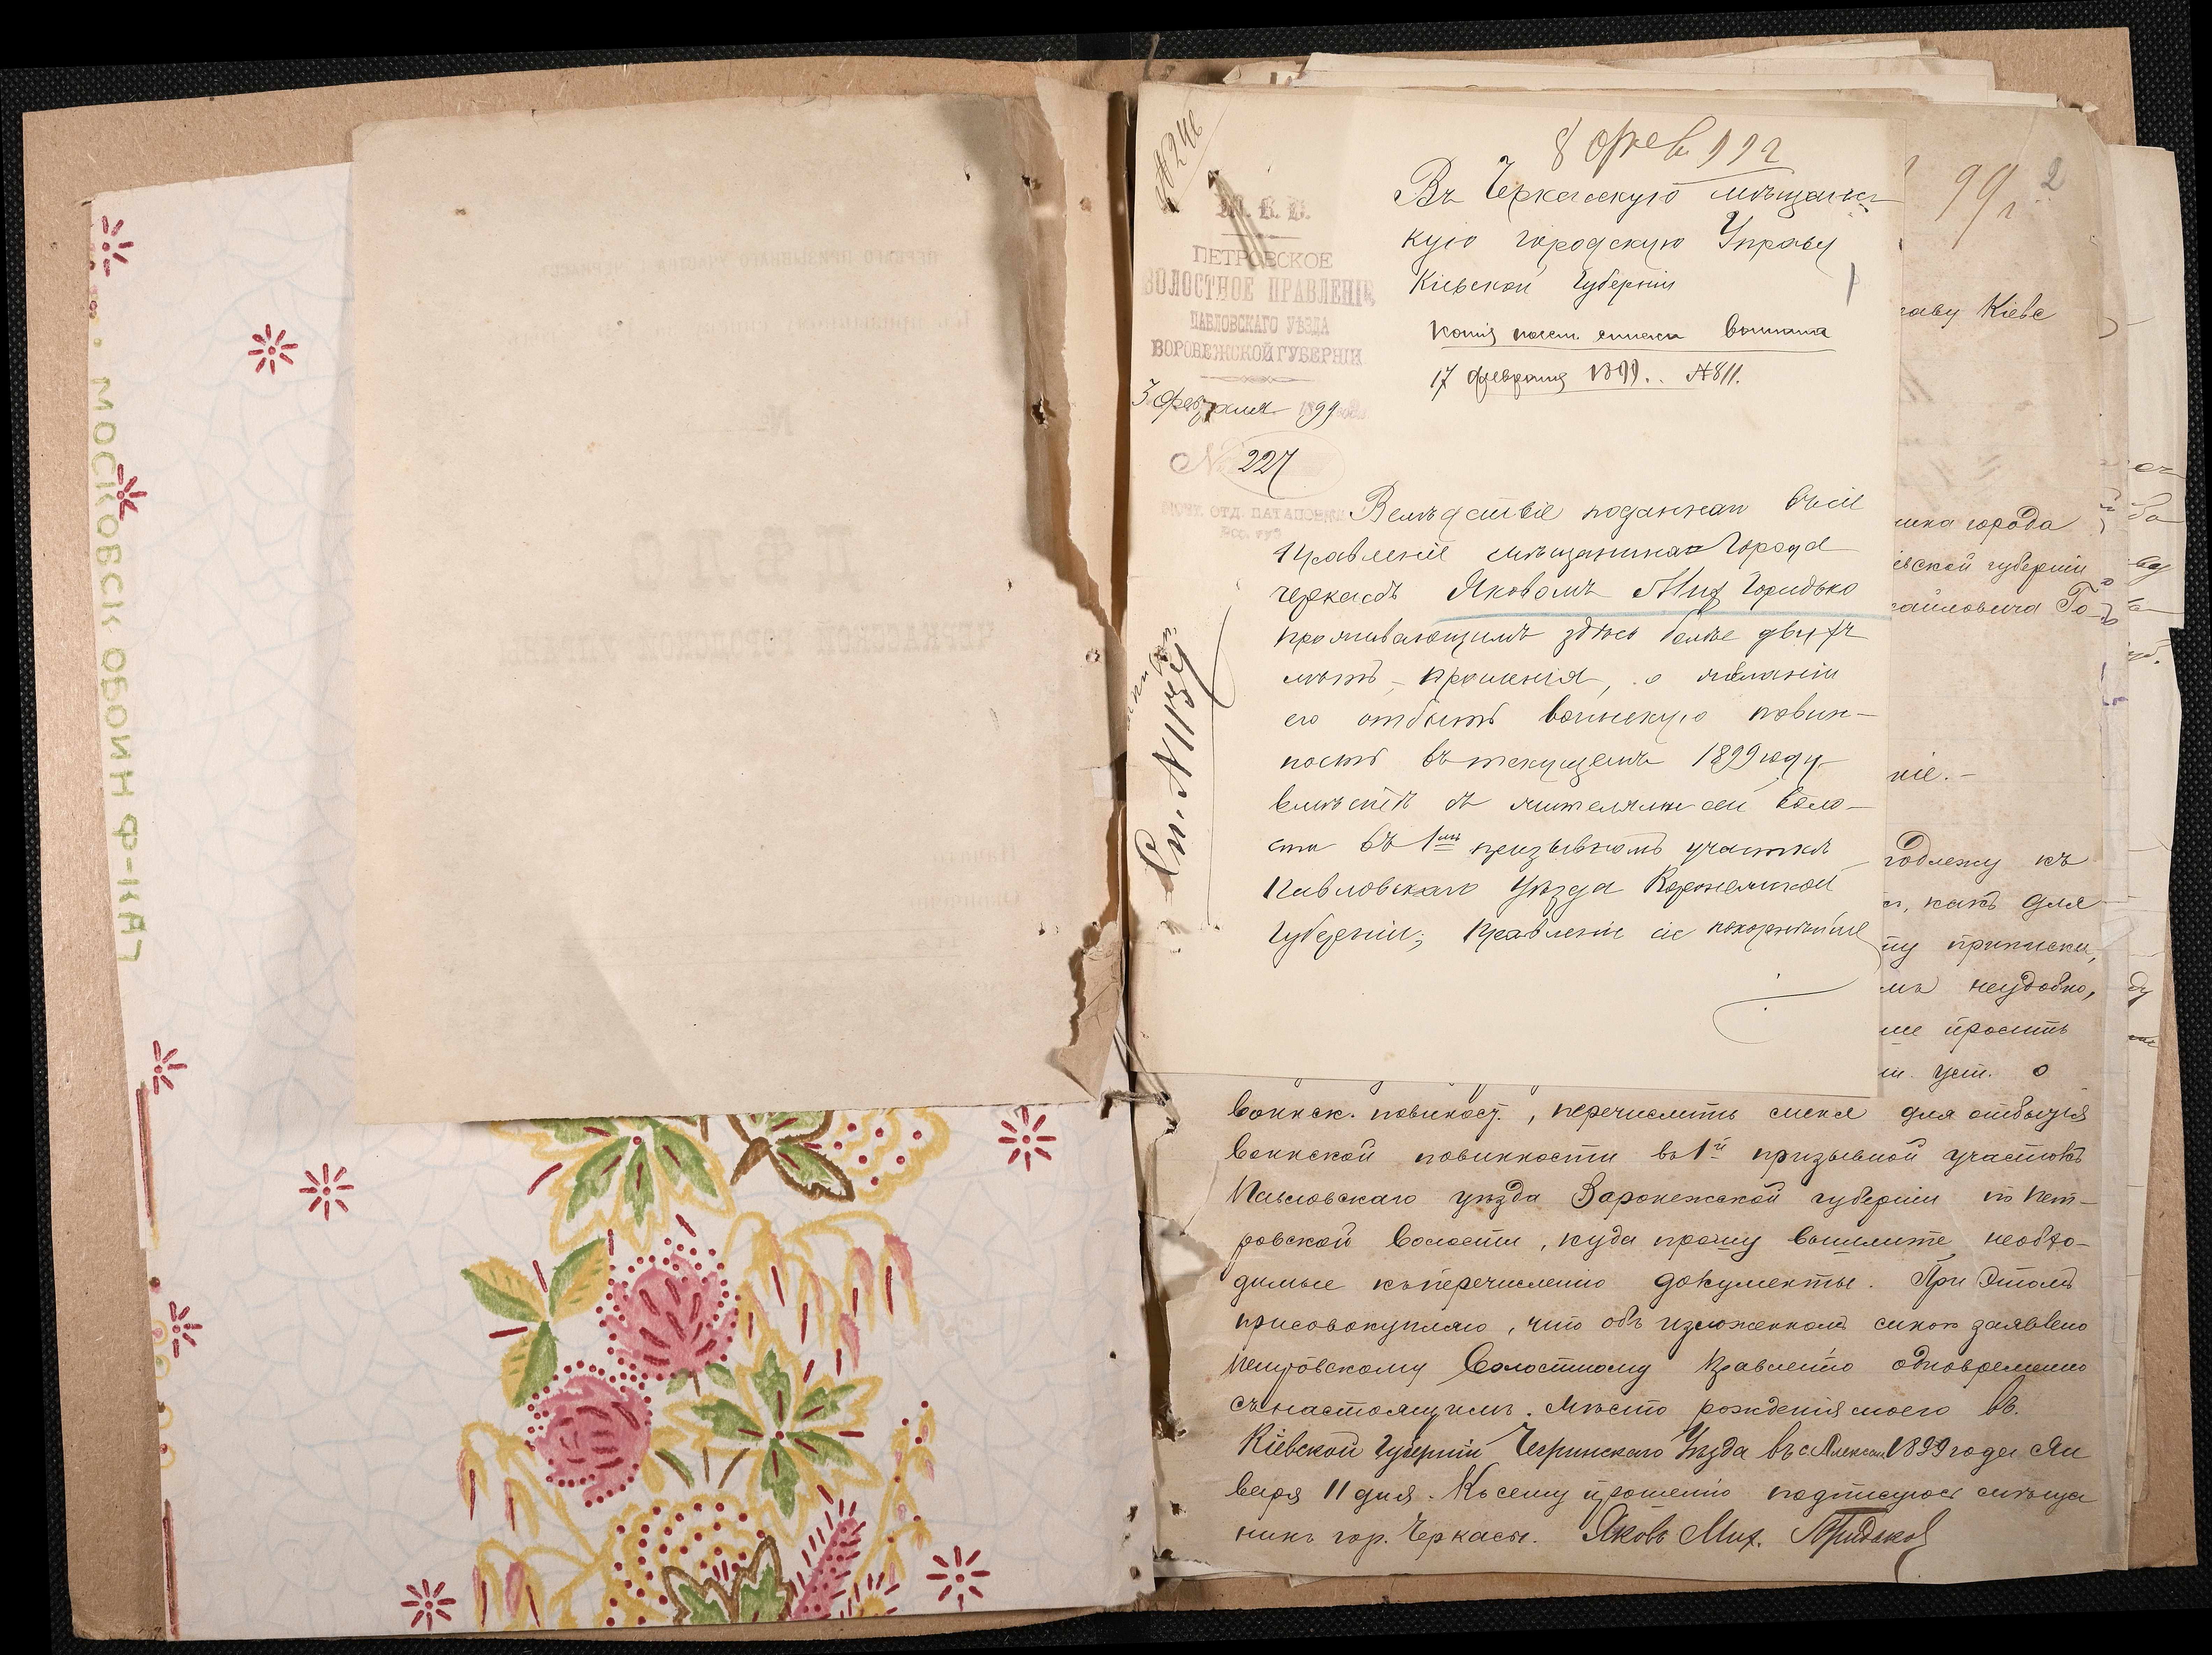 МОСКОВСК ОБОИН Ф-КА
ПЕРВАГО ПРИЗЫВНАГО УЧАСТКА
№
ДѢЛО
ЧЕРКАССКОЙ ГОРОДСКОЙ УПРАВЫ
№ 246
М. В. Д.
ПЕТРОВСКОЕ
ВОЛОСТНОЕ ПРАВЛЕНІЕ
ПАВЛОВСКАГО УѢЗДА
ВОРОНЕЖСКОЙ ГУБЕРНІИ
3 февраля 99
№ 227
ПОЧТ. ОТД. ПАТАПОВКА
8 фев 99 г
Въ Черкасскую мѣщанс
кую городскую Управу
Кіевской Губерніи
копія посем. списка выслана
17 февраля 1899.. №811.
Вслѣдствіе поданнаго въ сіе
Правленіе мѣщанина Города
Черкасъ Яковомъ Мих Горидько
проживающимъ здѣсь болѣе двухъ
лѣтъ, прошенія, о желаніи
его отбыть воинскую повин-
ность въ текущемъ 1899 году
вмѣстѣ съ жителями сей воло-
сти въ 1мъ призывномъ участкѣ
Павловскаго Уѣзда Воронежской
Губерніи; Правленіе сіе покорнѣйше
99 г. 2
раву Кіевс
нина города
евской губерніи
хайловича Го
ніе.-
годлежу къ
, какъ для
ту приписки,
мъ неудобно,
ше просить
уст. о
воинск. повиност., перечислить меня для отбытія
воинской повинности въ 1й призывной участокъ
Павловскаго уѣзда Воронежской губерніи по Пет-
ровской волости, куда прошу вышлите необхо-
димые къ перечисленію документы. При этомъ
присовокупляю, что объ изложенномъ мною заявлено
Петровскому Волостному Правленію одновременно
съ настоящимъ. Мѣсто рожденія моего въ.
Кіевской Губерніи Чегринскаго Уѣзда въ с Алексан. 1899 года Ян
варя 11 дня. Къ сему прошенію подписуюсь мѣща
нинъ гор. Черкасы. Яковъ Мих. Горидько